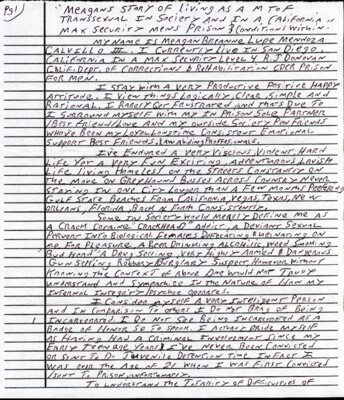 Pg1
"Meagan's Story of Living as a M to F
Transsexual in Society and in a California
Max Security Mens Prison & Conditions Within"
My name is Meagan Brianne Lupe Mendoza
Calvillo III. I Currently Live in San Diego,
California in a Max Security Level 4 R.J Donovan
Calif. Dept. of Corrections & Rehabilitation CDCR Prison
For Men.
I Stay with a Very Productive Positive Happy
Attitude. I View things Logically, Clear, Simple and
Rational. I Rarely Get Frustrated and thats Due to
I Surround myself with my In Prison Sole Partner
Best Friend/Love and my outside Society Pen Friends
Whove Been my Loyal Longtime Consistent Emotional
Support Best Friends, Law and Proffesionals.
I've Endured a Very Vicious, Violent, Hard
Life Yet a Very Fun, Exciting, Adventurous Lavish
Life Living Homeless on the Streets Constantly on
The Move on Greyhound Busses Across Country Never
Staying in One City Longer than a Few Months Preferring
Gulf State Beaches From California, Vegas, Texas, New
Orleans, Florida, Back & Forth Consistently.
Some in Society would Merely Define me as
a Crack Cocaine "Crackhead" addict, a Deviant Sexual
Pervert Into Biological Females Defecating & Urinating on
me For Pleasure, a Beer Drinking Alcoholic, Weed Smoking
"Bud Head" a Drug Selling, Very Highly Armed & Dangerous
Gun Selling Robbery/Burglary Suspect However Without
Knowing the Context of Above One Would Not Truly
Understand and Sympathize in the Nature of How my
Internal Integrity Psyche Operates.
I Consider myself a Very Intelligent Person
and in Comparison to others I Do Not Brag of Being
Incarcerated. I Do Not See Being Incarcerated as a
Badge of Honor So to Speak. I Actually Pride myself
as Having Had a Criminal Involvement Since my
Early Teenage Years I've Never Been Convicted
or Sent to Do Juvenile Detention Time in Fact I
was over the Age of 21 when I was First Convicted
& Sent to Prison unfortunately.
To Understand the Totality of Difficulties of